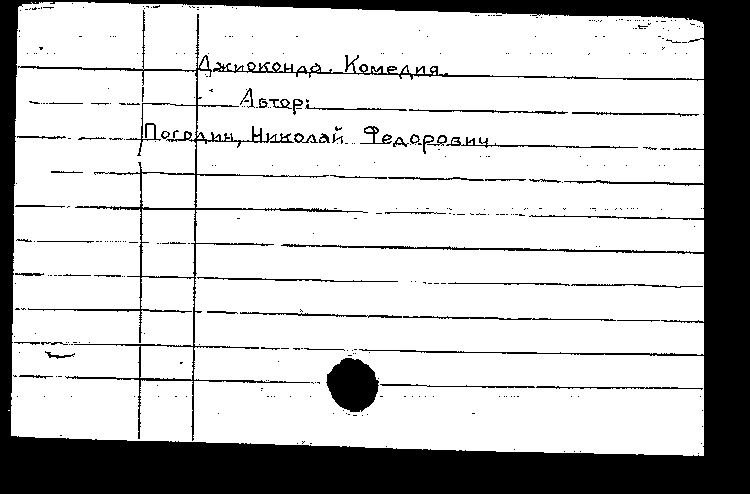 Джиоконда. Комедия.
Автор:
Погодин, Николай Федорович.